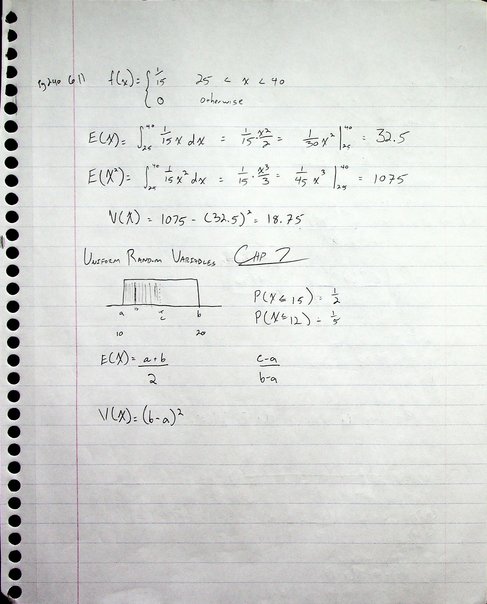 pg 240 6.11 f(x) = { 1/15 25 < x < 40
0 otherwise
E(X) = ∫₂₅⁴⁰ 1/15 x dx = 1/15 · x²/2 = 1/30 x² |₂₅⁴⁰ = 32.5
E(X²) = ∫₂₅⁴⁰ 1/15 x² dx = 1/15 · x³/3 = 1/45 x³ |₂₅⁴⁰ = 1075
V(X) = 1075 - (32.5)² = 18.75
Uniform Random Variables Chp 7
a c b
10 20
P(X ≤ 15) = 1/2
P(X ≤ 12) = 1/5
E(X) = a+b/2 c-a/b-a
V(X) = (b-a)²